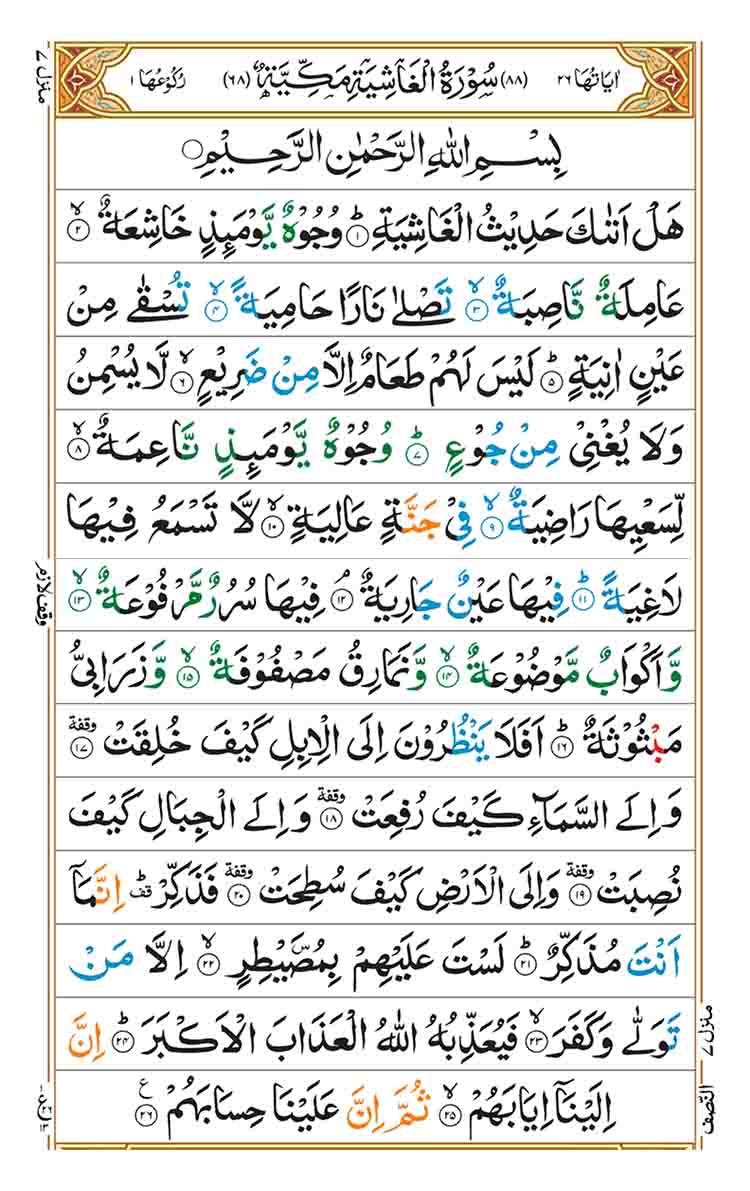 اٰيَاتُهَا ٢٦ (٨٨) سُوْرَةُ الْغَاشِيَةِ مَكِّيَّةٌ (٦٨) رُكُوْعُهَا ١
منزل ٧
بِسْمِ اللّٰهِ الرَّحْمٰنِ الرَّحِيْمِ
هَلْ اَتٰىكَ حَدِيْثُ الْغَاشِيَةِ ؕ ١ وُجُوْهٌ يَّوْمَىِٕذٍ خَاشِعَةٌ ۙ ٢
عَامِلَةٌ نَّاصِبَةٌ ۙ ٣ تَصْلٰى نَارًا حَامِيَةً ۙ ٤ تُسْقٰى مِنْ
عَيْنٍ اٰنِيَةٍ ؕ ٥ لَيْسَ لَهُمْ طَعَامٌ اِلَّا مِنْ ضَرِيْعٍ ۙ ٦ لَّا يُسْمِنُ
وَلَا يُغْنِيْ مِنْ جُوْعٍ ؕ ٧ وُجُوْهٌ يَّوْمَىِٕذٍ نَّاعِمَةٌ ۙ ٨
لِّسَعْيِهَا رَاضِيَةٌ ۙ ٩ فِيْ جَنَّةٍ عَالِيَةٍ ۙ ١٠ لَّا تَسْمَعُ فِيْهَا
لَاغِيَةً ؕ ١١ فِيْهَا عَيْنٌ جَارِيَةٌ ۘ ١٢ فِيْهَا سُرُرٌ مَّرْفُوْعَةٌ ۙ ١٣
وقف لازم
وَّاَكْوَابٌ مَّوْضُوْعَةٌ ۙ ١٤ وَّنَمَارِقُ مَصْفُوْفَةٌ ۙ ١٥ وَّزَرَابِيُّ
مَبْثُوْثَةٌ ؕ ١٦ اَفَلَا يَنْظُرُوْنَ اِلَى الْاِبِلِ كَيْفَ خُلِقَتْ وقفة ١٧
وَاِلَى السَّمَآءِ كَيْفَ رُفِعَتْ وقفة ١٨ وَاِلَى الْجِبَالِ كَيْفَ
نُصِبَتْ وقفة ١٩ وَاِلَى الْاَرْضِ كَيْفَ سُطِحَتْ وقفة ٢٠ فَذَكِّرْ ؕ قف اِنَّمَاۤ
اَنْتَ مُذَكِّرٌ ؕ ٢١ لَسْتَ عَلَيْهِمْ بِمُصَۜيْطِرٍ ۙ ٢٢ اِلَّا مَنْ
تَوَلّٰى وَكَفَرَ ۙ ٢٣ فَيُعَذِّبُهُ اللّٰهُ الْعَذَابَ الْاَكْبَرَ ؕ ٢٤ اِنَّ
منزل ٧
اِلَيْنَاۤ اِيَابَهُمْ ۙ ٢٥ ثُمَّ اِنَّ عَلَيْنَا حِسَابَهُمْ ع ٢٦
النصف